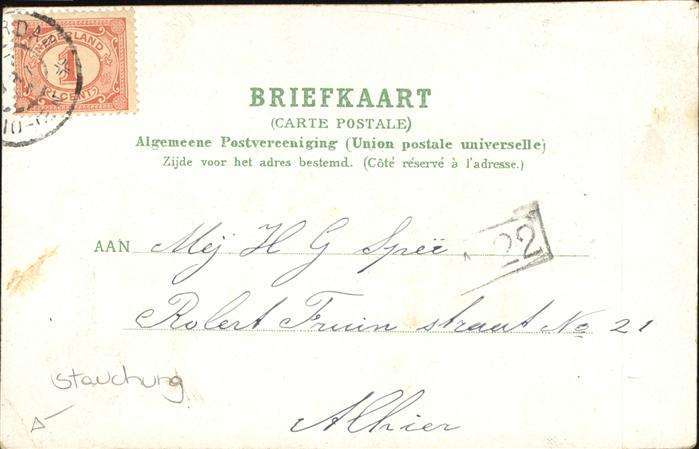 RDA
NEDERLAND
1
CENT
10-12
BRIEFKAART
(CARTE POSTALE)
Algemeene Postvereeniging (Union postale universelle)
Zijde voor het adres bestemd. (Côté réservé à l'adresse.)
AAN Mej H G Speë
22
Robert Fruin straat No 21
Stauchung
Alhier